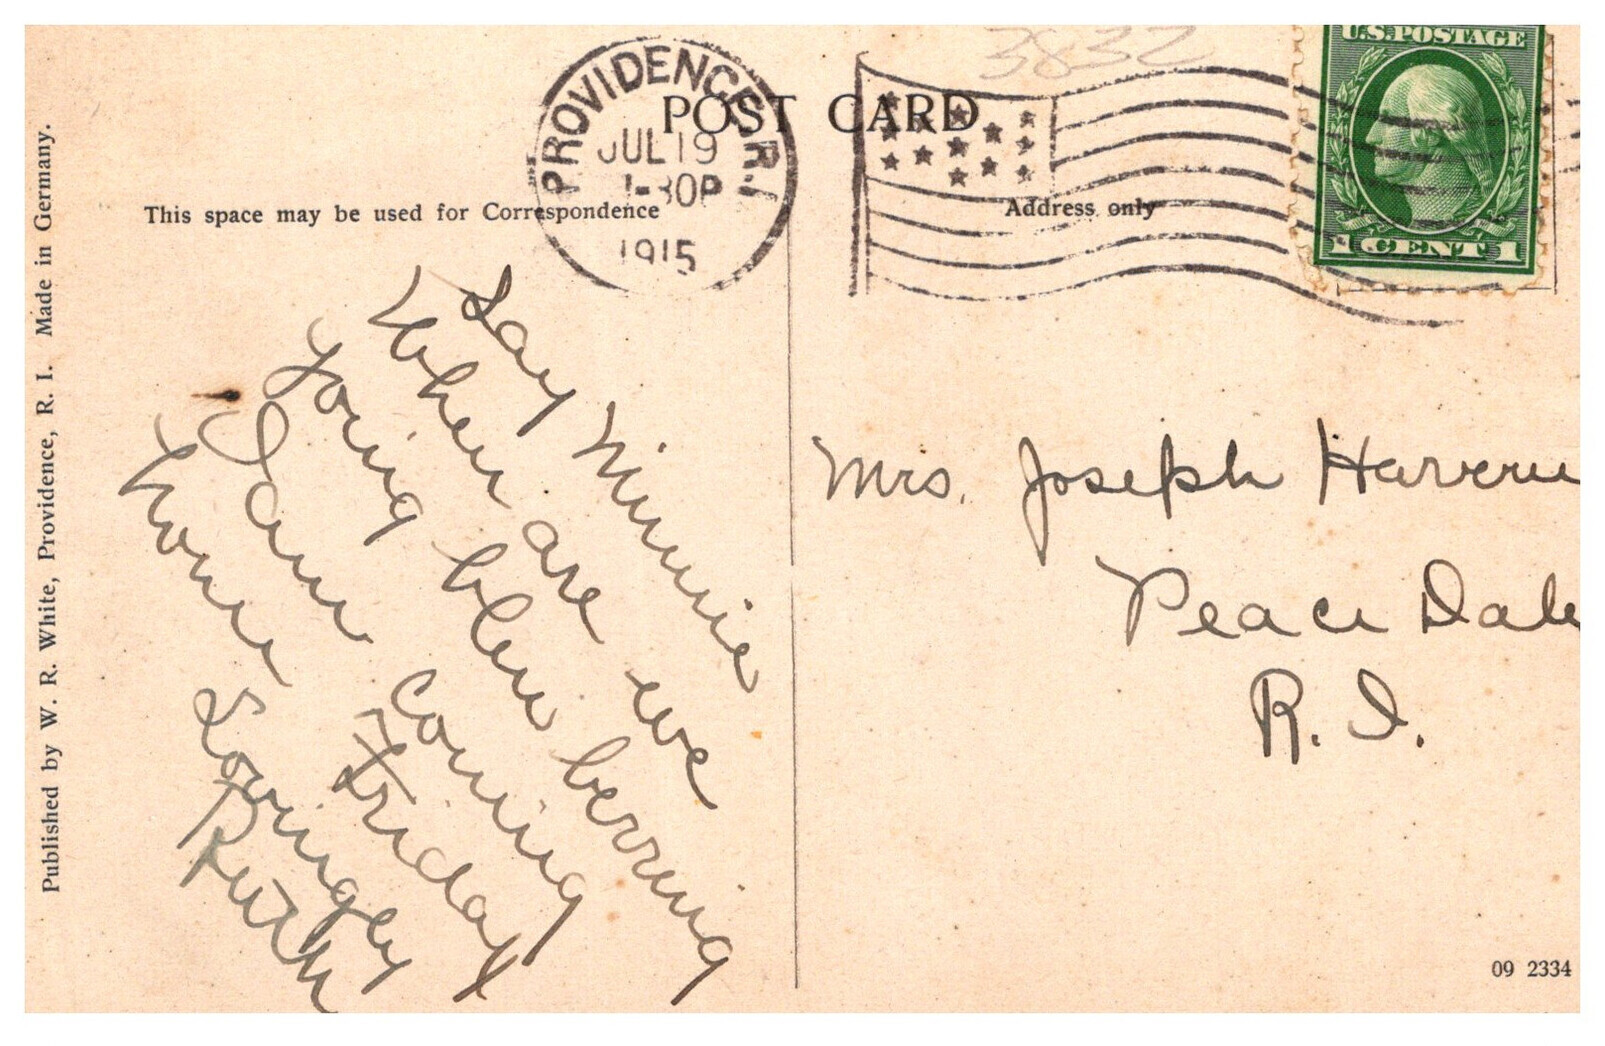 3832
PROVIDENCE R.I.
JUL 19
1915
POST CARD
U.S. POSTAGE
1 CENT 1
This space may be used for Correspondence
Address only
Say Minnie
When are we
going blew berring
I am coming
home Friday
Lovingley
Ruth
Mrs. Joseph
Peace Dale
R. I.
Published by W. R. White, Providence, R. I. Made in Germany.
09 2334